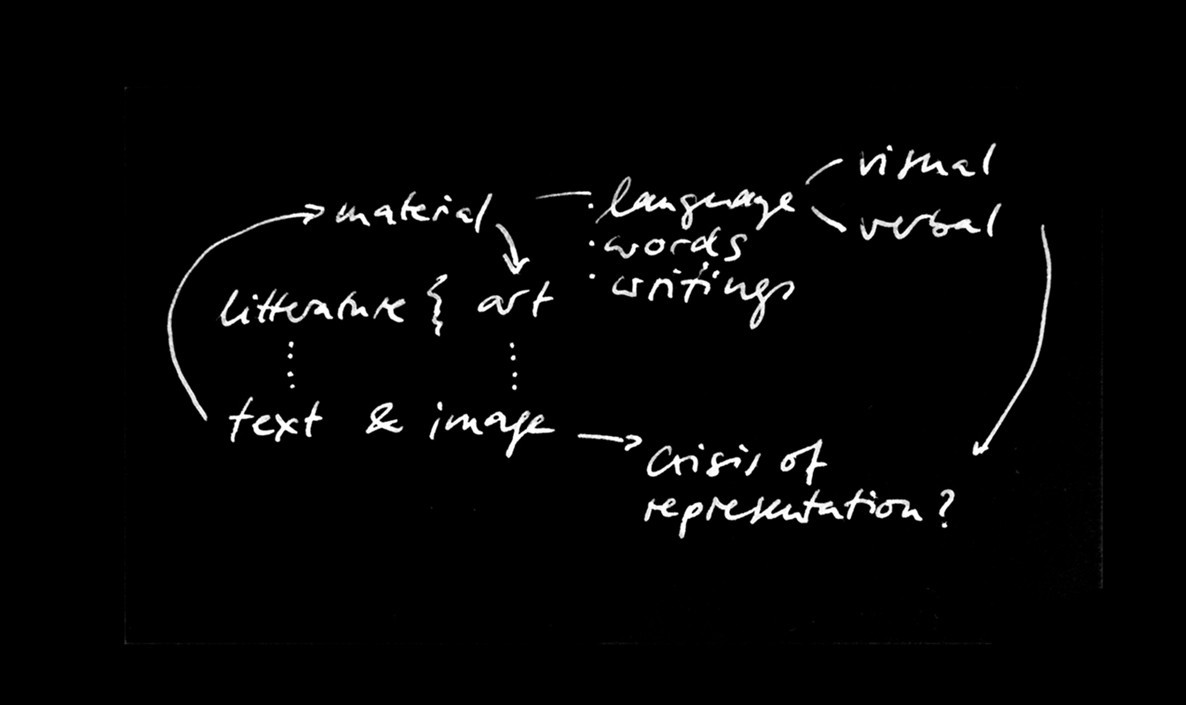 visual
material — · language
verbal
· words
· writings
litterature { art
text & image →
crisis of
representation?